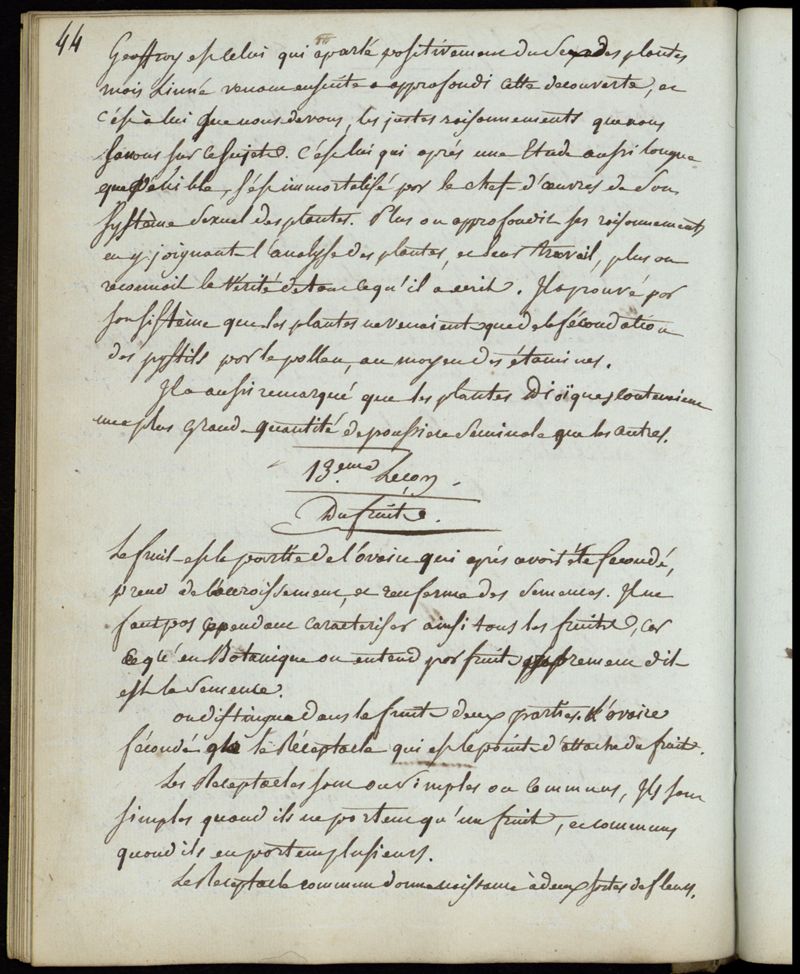 44
Geoffroy est celui qui a parlé positivement du Sexe des plantes
mais Linné venant ensuite a approfondi cette decouverte, et
c'est à lui que nous devons, les justes raisonnements que nous
savons sur ce sujet. C'est lui qui aprés une Etude aussi longue
que pénible, s'est immortalisé par le chef d'œuvres de son
système Sexuel des plantes. Plus on approfondit ses raisonnements
en y joignant l'analyse des plantes, et leur travail, plus on
reconnoit la vérité de tout ce qu'il a ecrit. Il a prouvé par
son sistème que les plantes ne venaient que de la fécondation
des pystils par le pollen, au moyen des étamines.
Il a aussi remarqué que les plantes Dioïques contenaient
une plus grande quantité de poussiere Seminale que les autres.
13.eme Leçon.
Du fruit.
Le fruit est la partie de l'ovaire qui aprés avoir été fécondé,
prend de l'accroissement, et renferme des Semences. Il ne
faut pas cependant caracteriser ainsi tous les fruits, car
ce qu'en Botanique on entend par fruit proprement dit
est la Semence.
on distingue dans le fruit deux parties. L'ovaire
fécondé et le Réceptacle qui est le point d'attache du fruit.
Les Receptacles sont ou Simples ou Communs, Ils sont
simples quand ils ne portent qu'un fruit, et communs
quand ils en portent plusieurs.
Le Réceptacle commun donne naissance à deux sortes de fleurs.